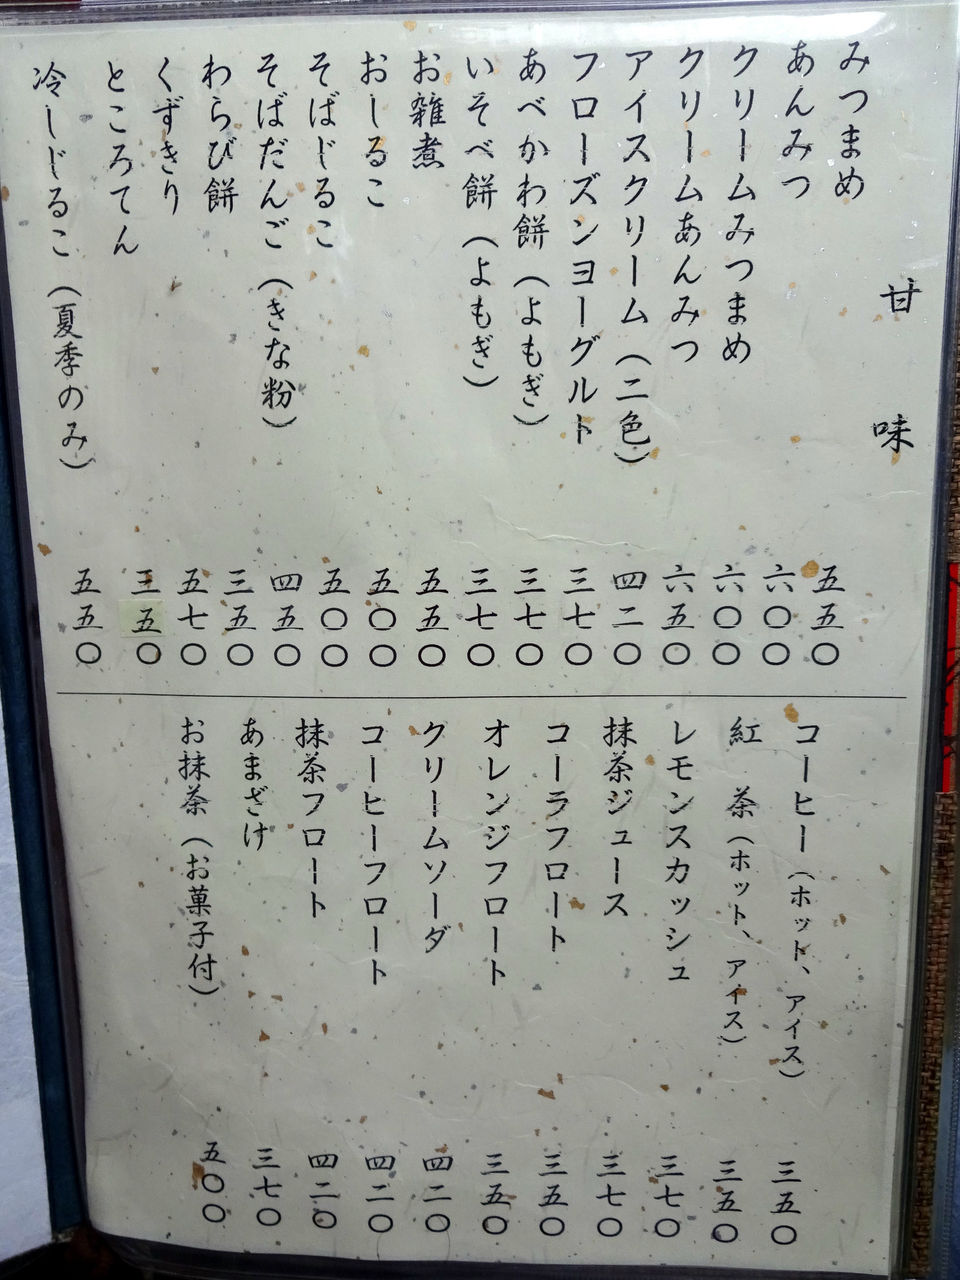 甘味
みつまめ 五五〇
あんみつ 六〇〇
クリームみつまめ 六〇〇
クリームあんみつ 六五〇
アイスクリーム(二色) 四二〇
フローズンヨーグルト 三七〇
あべかわ餅(よもぎ) 三七〇
いそべ餅(よもぎ) 三七〇
お雑煮 五五〇
おしるこ 五〇〇
そばじるこ 五〇〇
そばだんご(きな粉) 四五〇
わらび餅 三五〇
くずきり 五七〇
ところてん 三五〇
冷しじるこ(夏季のみ) 五五〇
コーヒー(ホット、アイス) 三五〇
紅茶(ホット、アイス) 三五〇
レモンスカッシュ 三七〇
抹茶ジュース 三七〇
コーラフロート 三五〇
オレンジフロート 三五〇
クリームソーダ 四二〇
コーヒーフロート 四二〇
抹茶フロート 四二〇
あまざけ 三七〇
お抹茶(お菓子付) 五〇〇